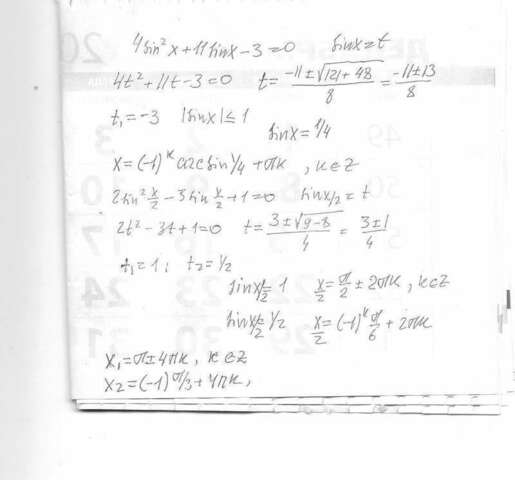 4sin²x+11sinx-3=0 sinx=t
4t²+11t-3=0 t=(-11±√(121+48))/8=(-11±13)/8
t₁=-3 |sinx|≤1
sinx=1/4
x=(-1)ᵏarcsin1/4+πk, k∈Z
2sin²x/2-3sinx/2+1=0 sinx/2=t
2t²-3t+1=0 t=(3±√(9-8))/4=(3±1)/4
t₁=1; t₂=1/2
sinx/2=1 x/2=π/2±2πk, k∈Z
sinx/2=1/2 x/2=(-1)ᵏπ/6+2πk
x₁=π±4πk, k∈Z
x₂=(-1)π/3+4πk,